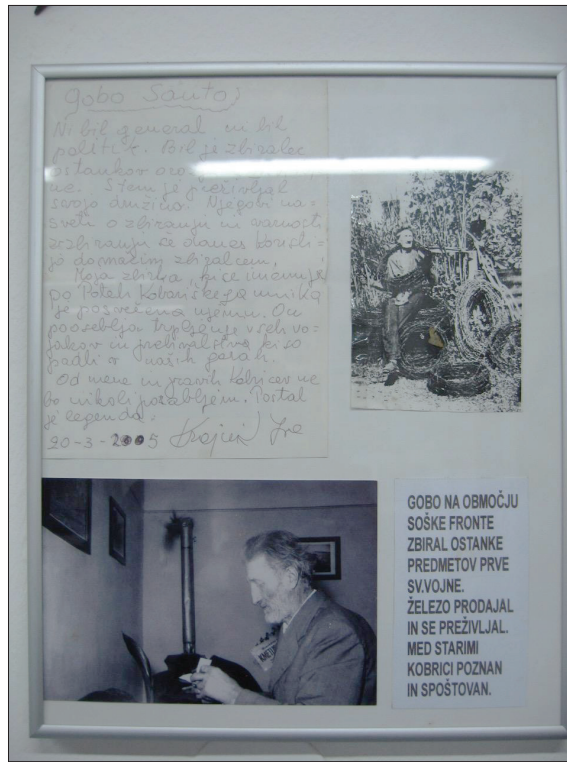 Gobo Santo
Ni bil general in bil
politik. Bil je zbiralec
ostankov
S tem je preživljal
svojo družino. Njegovi na=
sveti o zbiranju in varnosti
zbiranju se danes koristi=
jo domačim zbiralcem.
Moja zbirka, ki se imenuje
po Poteh Kobariškega
je posvečena njemu. On
pooseblja trpljenje vseh vo=
jakov in prebivalstva ki so
padli v naših gorah.
Od mene in pravih Kobricev ne
bo nikoli pozabljen. Postal
je legenda.
20-3-2005
GOBO NA OBMOČJU
SOŠKE FRONTE
ZBIRAL OSTANKE
PREDMETOV PRVE
SV.VOJNE.
ŽELEZO PRODAJAL
IN SE PREŽIVLJAL.
MED STARIMI
KOBRICI POZNAN
IN SPOŠTOVAN.